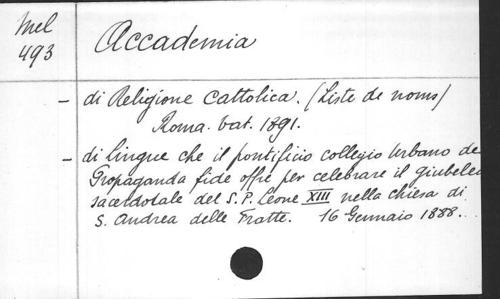 Mel
493
Accademia
– di Religione Cattolica. (Liste de noms)
Roma. vat. 1891.
– di lingue che il pontificio collegio Urbano de
Propaganda fide offre per celebrare il giubeleo
sacerdotale del S. P. Leone XIII nella chiesa di
S. Andrea delle Fratte. 16 Gennaio 1888.